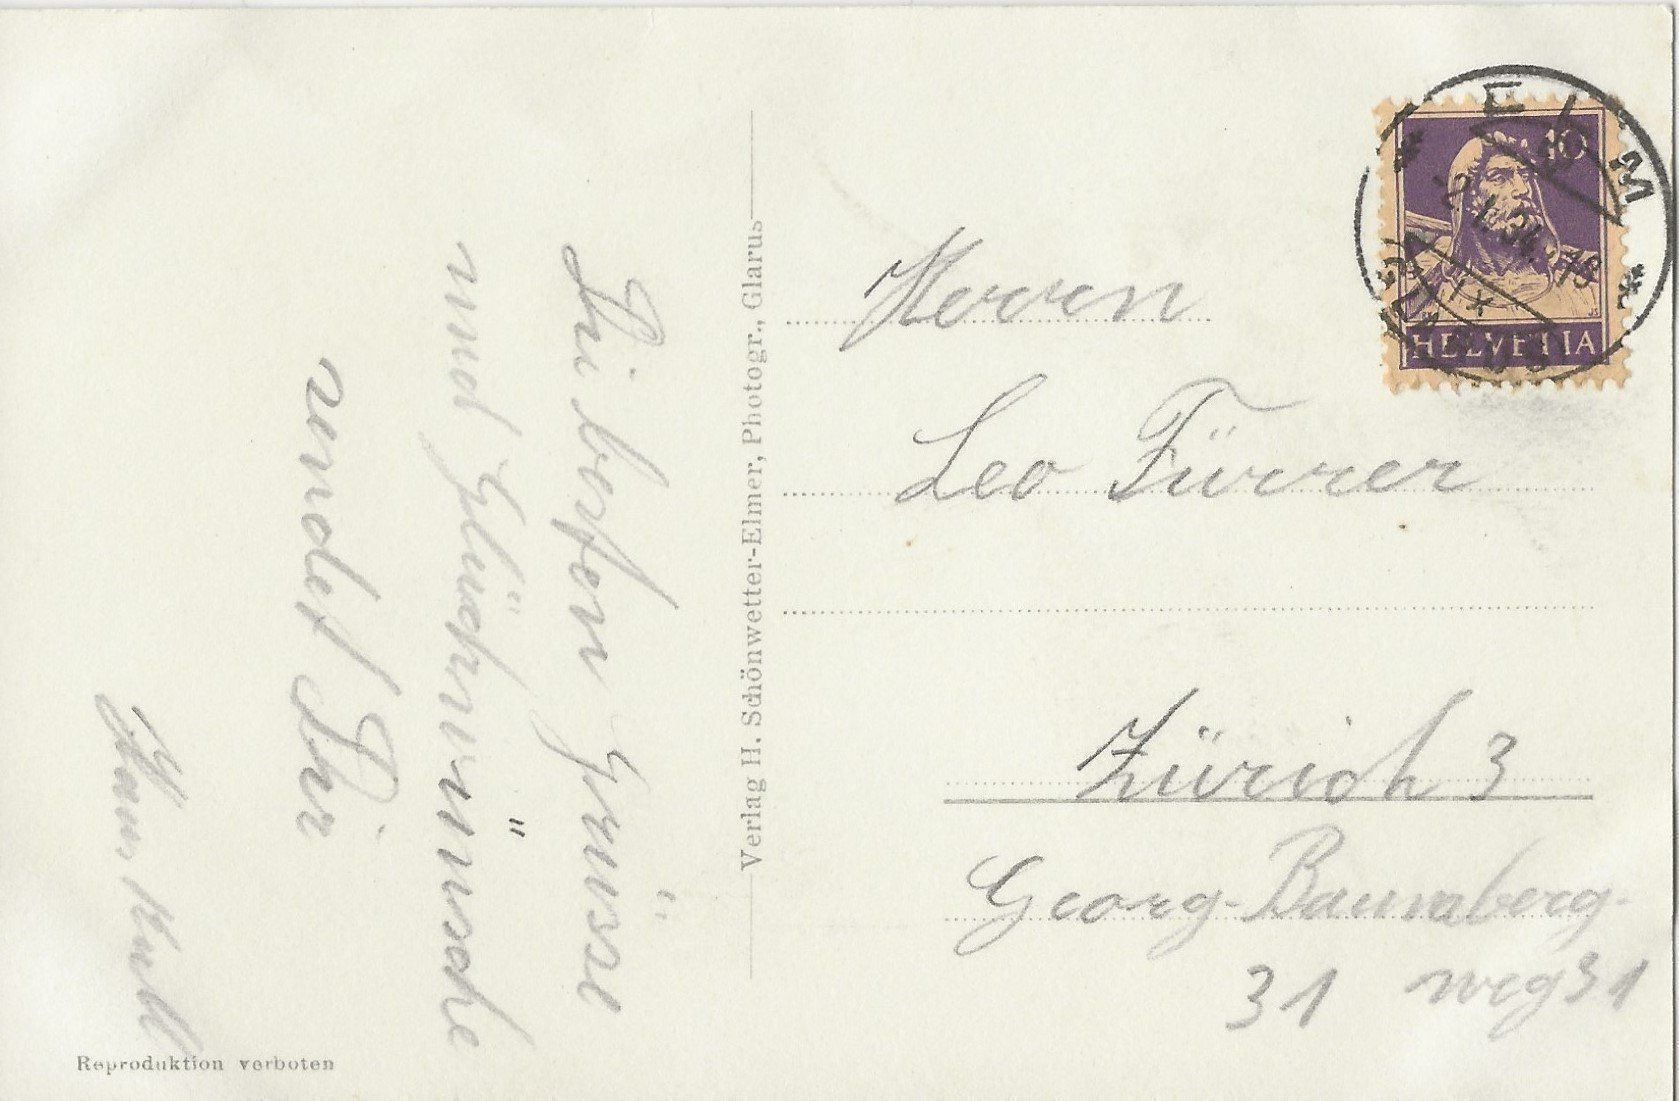 Die besten Grüsse
und Glückwünsche
sendet Ihr
Hans
Reproduktion verboten
Verlag H. Schönwetter-Elmer, Photogr., Glarus
ELM
10
34
HELVETIA
Herrn
Leo Fürrer
Zürich 3
Georg-Baumberg-
31 weg 31